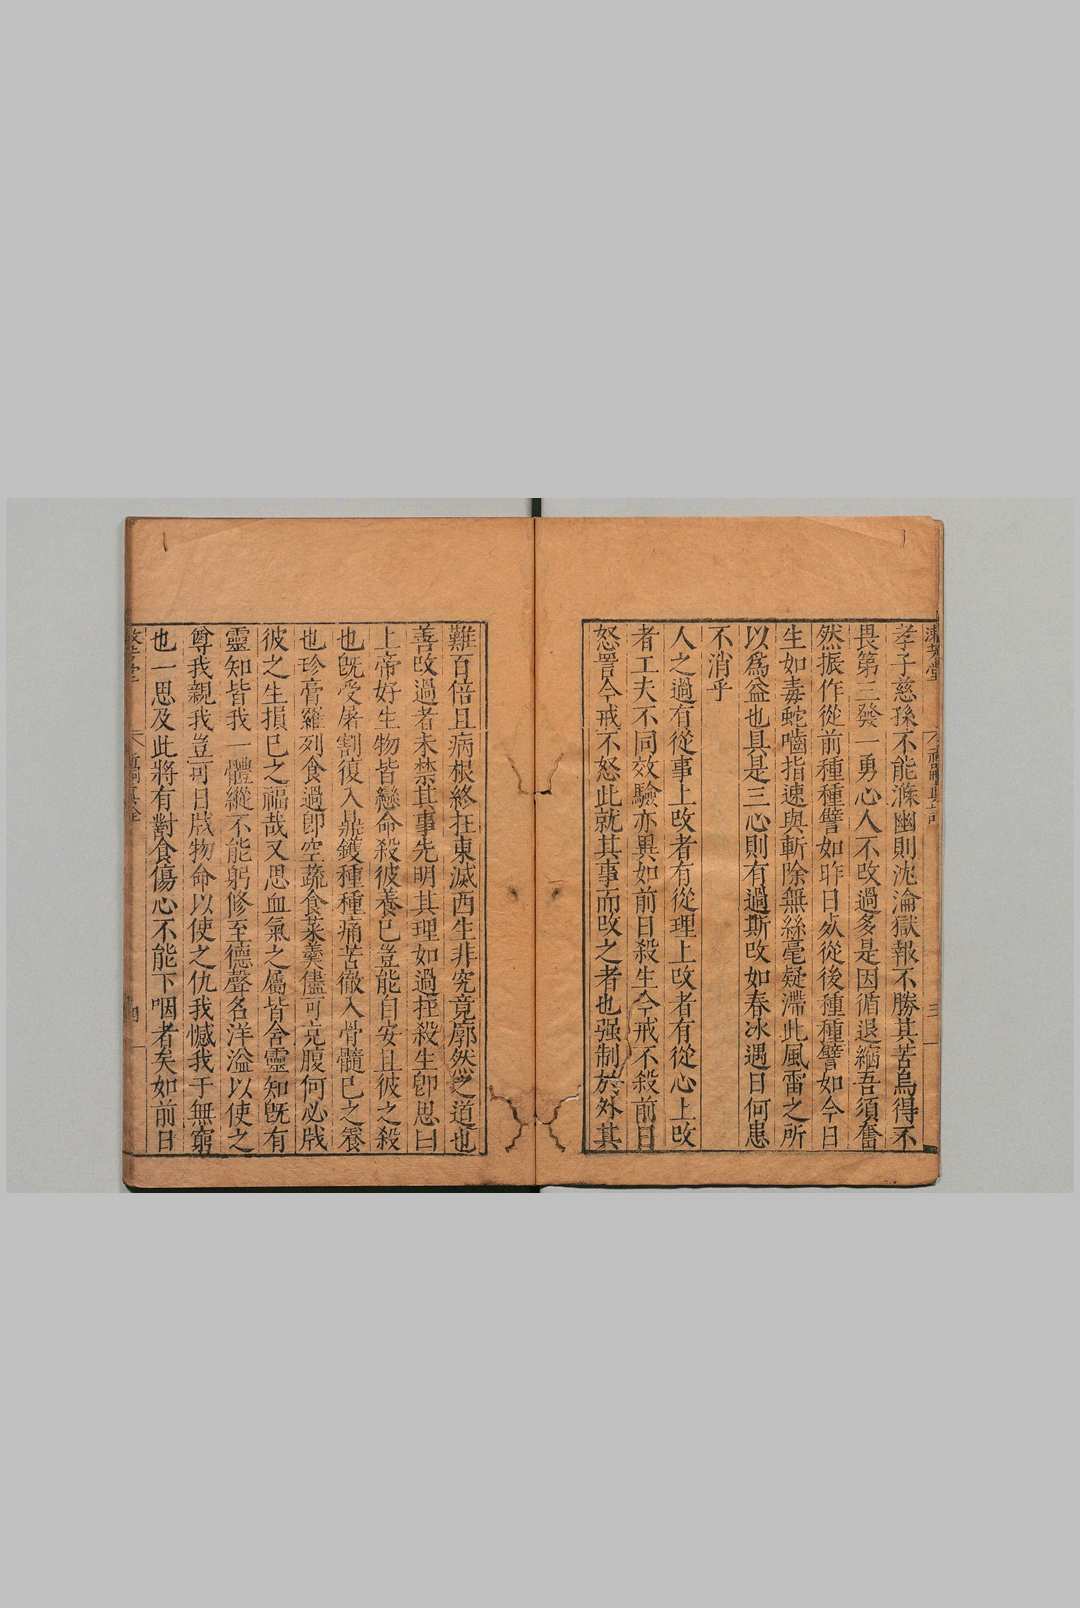 孝子慈孫不能滌幽則沈淪獄報不勝其苦烏得不
畏第三發一勇心人不改過多是因循退縮吾須奮
然振作從前種種譬如昨日死從後種種譬如今日
生如毒蛇嚙指速與斬除無絲毫疑滯此風雷之所
以爲益也具是三心則有過斯改如春冰遇日何患
不消乎
人之過有從事上改者有從理上改者有從心上改
者工夫不同效驗亦異如前日殺生今戒不殺前日
怒詈今戒不怒此就其事而改之者也强制於外其
難百倍且病根終在東滅西生非究竟廓然之道也
善改過者未禁其事先明其理如過在殺生卽思曰
上帝好生物皆戀命殺彼養已豈能自安且彼之殺
也旣受屠割復入鼎鑊種種痛苦徹入骨髓已之養
也珍膏羅列食過卽空蔬食菜羹儘可充腹何必戕
彼之生損已之福哉又思血氣之屬皆含靈知旣有
靈知皆我一體縱不能躬修至德聲名洋溢以使之
尊我親我豈可日戕物命以使之仇我憾我于無窮
也一思及此將有對食傷心不能下咽者矣如前日